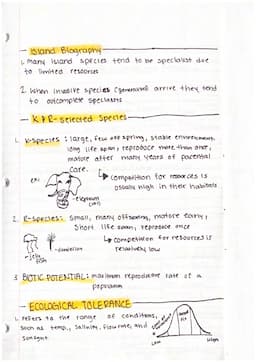 Island Biography
1. Many island species tend to be specialist due
to limited resources
2. When invasive species (generalist) arrive they tend
to outcompete specialists
K & R-Selected Species
1. K-species: large, few offspring, stable environment,
long life span, reproduce more than once,
mature after many years of parental
care.
↳ competition for resources is
usually high in their habitats
ex:
elephant
2. R-species: Small, many offspring, mature early,
Short life span, reproduce once
↳ competition for resources is
relatively low
jelly
fish
dandelion
3. BIOTIC POTENTIAL: maximum reproductive rate of a
population
ECOLOGICAL TOLERANCE
1. refers to the range of conditions,
such as temp., salinity, flow rate, and
sunlight
Low
High